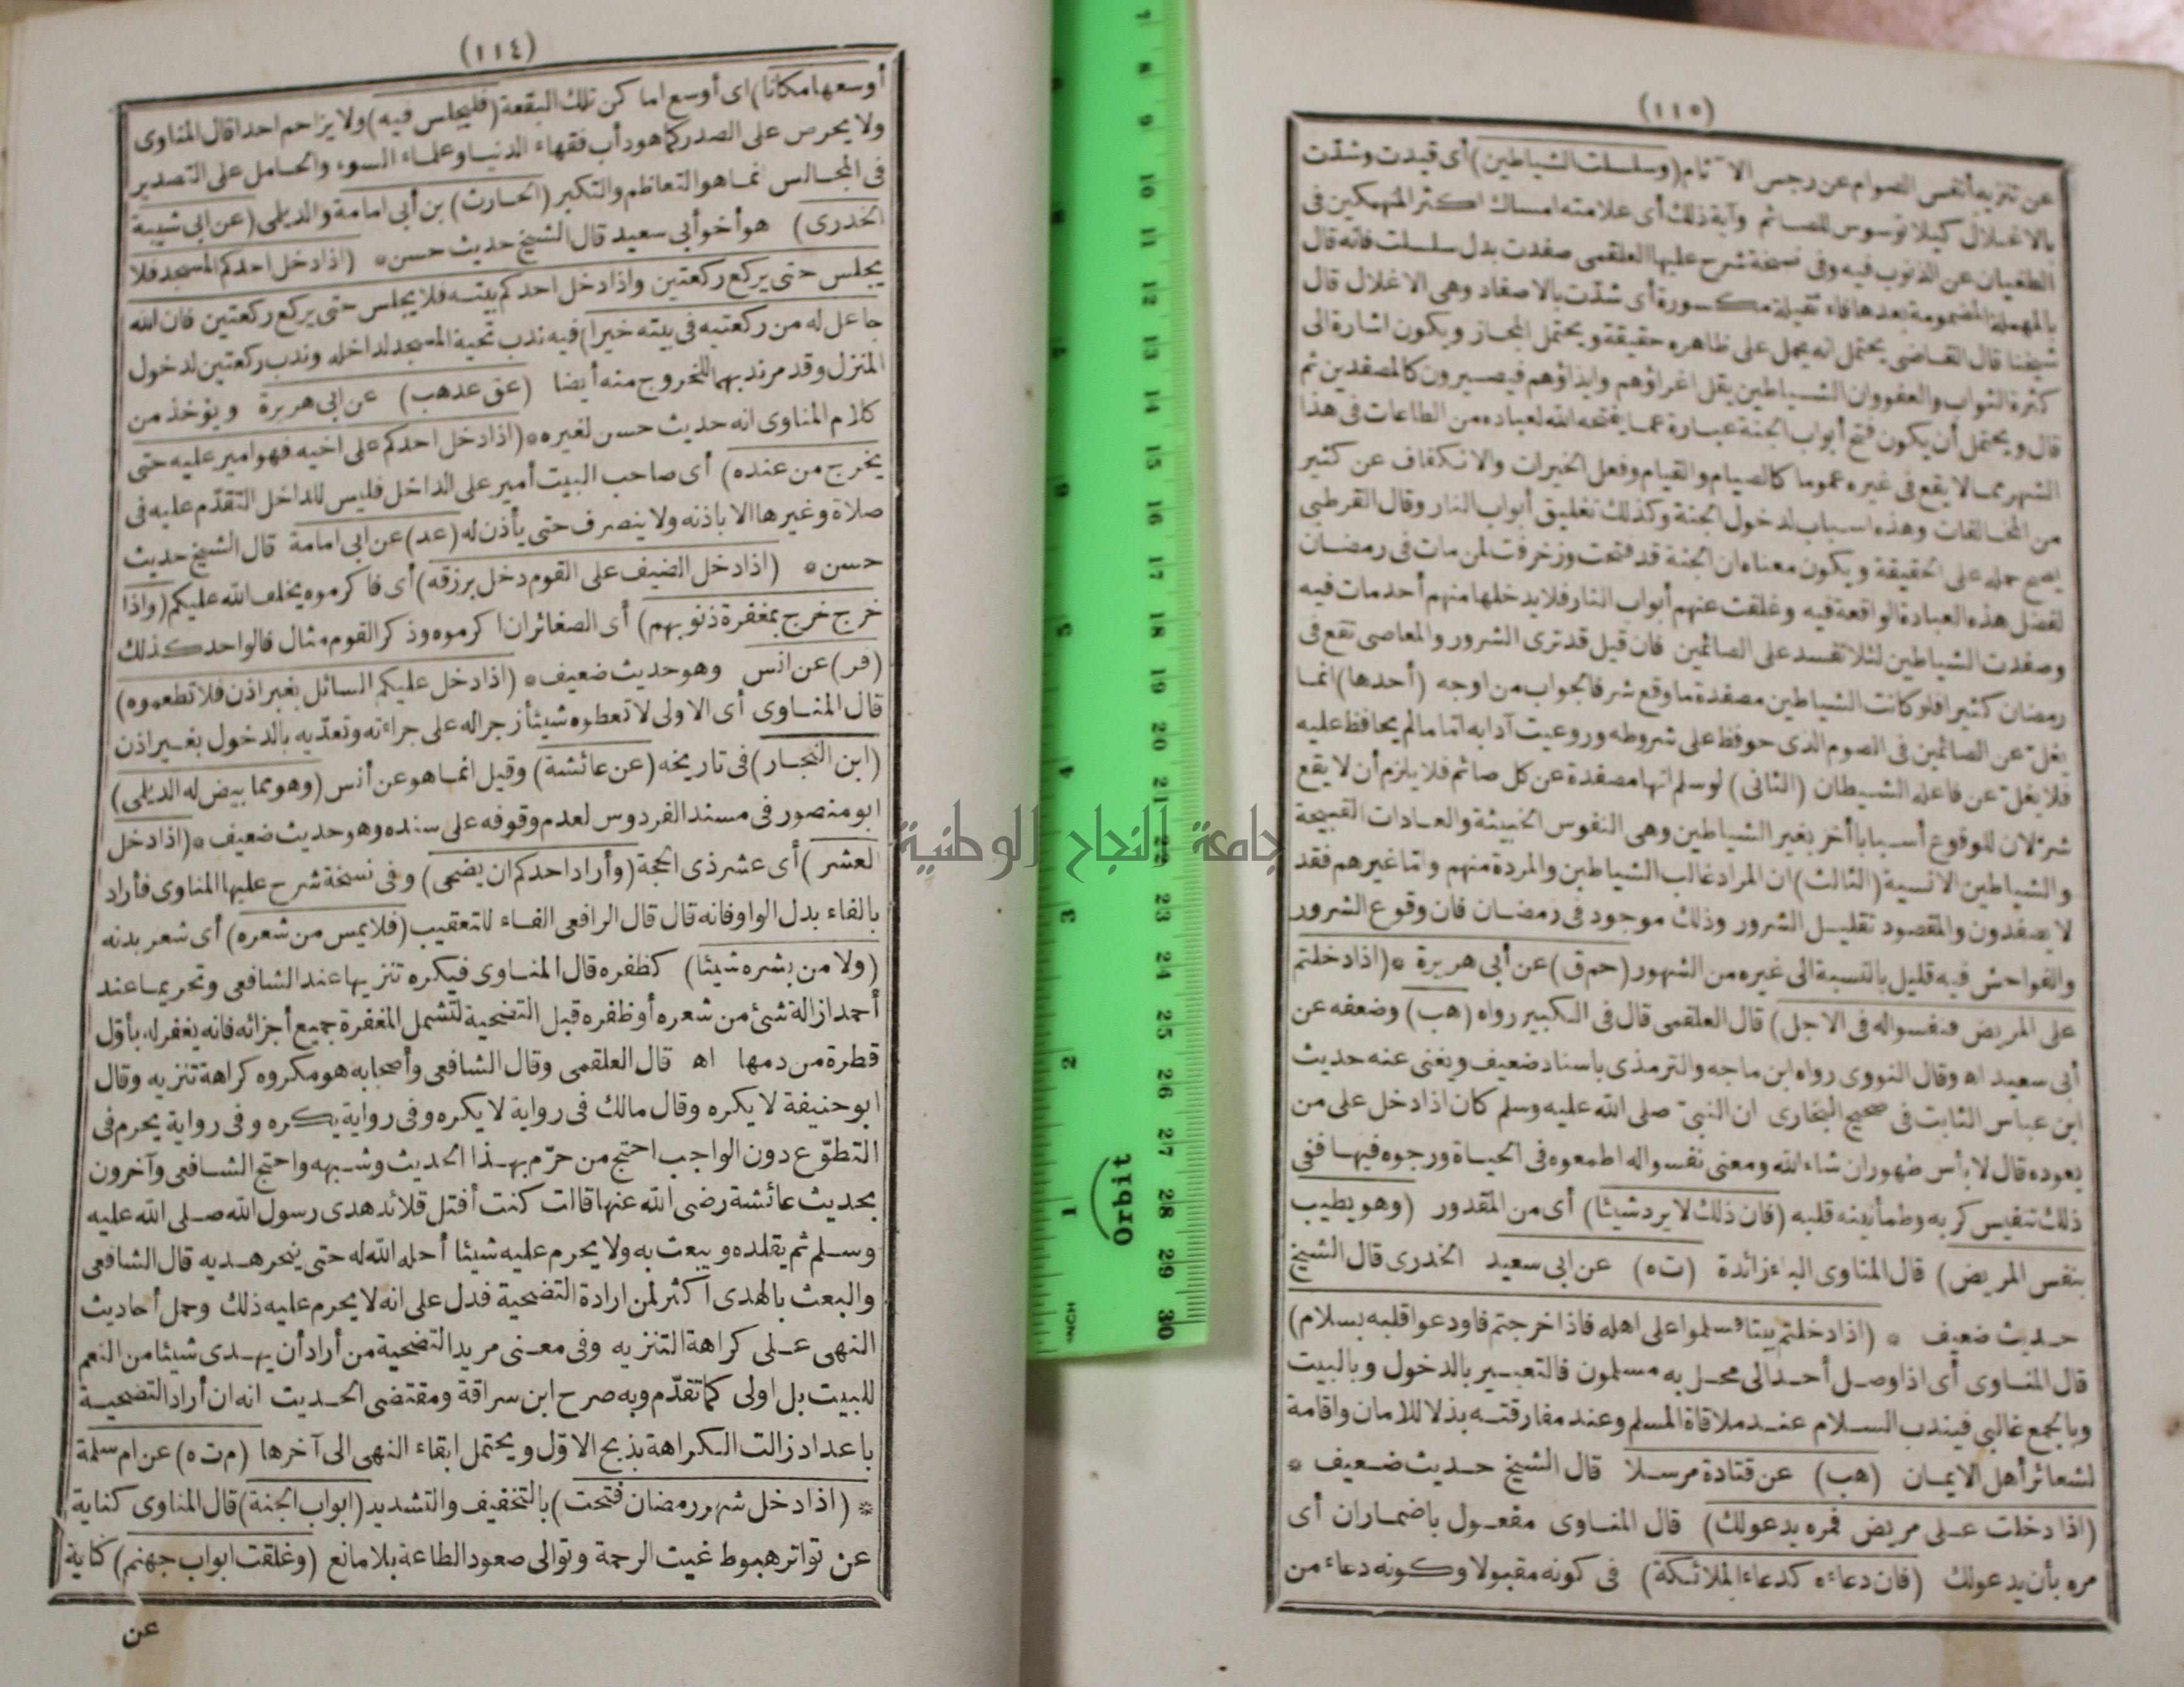 (١١٤)
أوسعها مكانا) اى أوسع اما كن تلك البقعة (فليجلس فيه) ولا يزاحم احدا قال المناوى
ولا يحرص على الصدر كما هو دأب فقهاء الدنيا وعلماء السوء والحامل على التصدير
فى المجالس انما هو التعاظم والتكبر (الحارث) بن أبى امامة والديلى (عن ابى شيبة
الخدرى) هو أخو أبى سعيد قال الشيخ حديث حسن * (اذا دخل احدكم المسجد فلا
يجلس حتى يركع ركعتين واذا دخل احدكم بيته فلا يجلس حتى يركع ركعتين فان الله
جاعل له من ركعتيه فى بيته خيرا) فيه ندب تحية المسجد لداخله وندب ركعتين لدخول
المنزل وقد مر ندبهما للخروج منه أيضا (عق عد هب) عن ابى هريرة ويؤخذ من
كلام المناوى انه حديث حسن لغيره * (اذا دخل احدكم على اخيه فهو امير عليه حتى
يخرج من عنده) أى صاحب البيت أمير على الداخل فليس للداخل التقدّم عليه فى
صلاة وغيرها الا باذنه ولا ينصرف حتى يأذن له (عد) عن ابى امامة قال الشيخ حديث
حسن * (اذا دخل الضيف على القوم دخل برزقه) أى فاكرموه يخلف الله عليكم (واذا
خرج خرج بمغفرة ذنوبهم) أى الصغائر ان اكرموه وذكر القوم مثال فالواحد كذلك
(فر) عن انس وهو حديث ضعيف * (اذا دخل عليكم السائل بغير اذن فلا تطعموه)
قال المناوى أى الاولى لا تعطوه شيئا زجرا له على جراءته وتعدّيه بالدخول بغير اذن
(ابن النجار) فى تاريخه (عن عائشة) وقيل انما هو عن أنس (وهو مما بيض له الديلى)
ابو منصور فى مسند الفردوس لعدم وقوفه على سنده وهو حديث ضعيف * (اذا دخل
العشر) أى عشر ذى الحجة (وأراد احدكم ان يضحى) وفى نسخة شرح عليها المناوى فأراد
بالفاء بدل الواو فانه قال قال الرافعى الفاء للتعقيب (فلا يمس من شعره) أى شعر بدنه
(ولا من بشره شيئا) كظفره قال المناوى فيكره تنزيها عند الشافعى وتحريما عند
أحمد ازالة شئ من شعره أو ظفره قبل التضحية لتشمل المغفرة جميع أجزائه فانه يغفر له بأوّل
قطرة من دمها اه قال العلقمى وقال الشافعى وأصحابه هو مكروه كراهة تنزيه وقال
ابو حنيفة لا يكره وقال مالك فى رواية لا يكره وفى رواية يكره وفى رواية يحرم فى
التطوّع دون الواجب احتج من حرّم بهذا الحديث وشبهه واحتج الشافعى وآخرون
بحديث عائشة رضى الله عنها قالت كنت أفتل قلائد هدى رسول الله صلى الله عليه
وسلم ثم يقلده ويبعث به ولا يحرم عليه شيئا أحله الله له حتى ينحر هديه قال الشافعى
والبعث بالهدى اكثر لمن ارادة التضحية فدل على انه لا يحرم عليه ذلك وحمل أحاديث
النهى على كراهة التنزيه وفى معنى مريد التضحية من أراد أن يهدى شيئا من النعم
للبيت بل اولى كما تقدّم وبه صرح ابن سراقة ومقتضى الحديث انه ان أراد التضحية
باعداد زالت الكراهة بذبح الاوّل ويحتمل ابقاء النهى الى آخرها (م ت ه) عن ام سلمة
* (اذا دخل شهر رمضان فتحت) بالتخفيف والتشديد (ابواب الجنة) قال المناوى كناية
عن تواتر هبوط غيث الرحمة وتوالى صعود الطاعة بلا مانع (وغلقت ابواب جهنم) كناية
عن
(١١٥)
عن تنزيه أنفس الصوام عن رجس الآثام (وسلسلت الشياطين) أى قيدت وشدّت
بالاغلال كيلا توسوس للصائم وآية ذلك أى علامته امساك اكثر المنهمكين فى
الطغيان عن الذنوب فيه وفى نسخة شرح عليها العلقمى صفدت بدل سلسلت فانه قال
بالمهملة المضمومة بعدها فاء ثقيلة مكسورة أى شدّت بالاصفاد وهى الاغلال قال
شيخنا قال القاضى يحتمل انه يحمل على ظاهره حقيقة ويحتمل المجاز ويكون اشارة الى
كثرة الثواب والعفو وان الشياطين يقل اغراؤهم وايذاؤهم فيصيرون كالمصفدين ثم
قال ويحتمل أن يكون فتح أبواب الجنة عبارة عما يفتحه الله لعباده من الطاعات فى هذا
الشهر مما لا يقع فى غيره عموما كالصيام والقيام وفعل الخيرات والانكفاف عن كثير
من المخالفات وهذه اسباب لدخول الجنة وكذلك تغليق أبواب النار وقال القرطبى
يصح حمله على الحقيقة ويكون معناه ان الجنة قد فتحت وزخرفت لمن مات فى رمضان
لفضل هذه العبادة الواقعة فيه وغلقت عنهم أبواب النار فلا يدخلها منهم أحد مات فيه
وصفدت الشياطين لئلا تفسد على الصائمين فان قيل قد ترى الشرور والمعاصى تقع فى
رمضان كثيرا فلو كانت الشياطين مصفدة ما وقع شر فالجواب من اوجه (أحدها) انما
يغلّ عن الصائمين فى الصوم الذى حوفظ على شروطه وروعيت آدابه امّا ما لم يحافظ عليه
فلا يغلّ عن فاعله الشيطان (الثانى) لو سلم انها مصفدة عن كل صائم فلا يلزم أن لا يقع
شرّ لان للوقوع أسبابا أخر بغير الشياطين وهى النفوس الخبيثة والعادات القبيحة
والشياطين الانسية (الثالث) ان المراد غالب الشياطين والمردة منهم وامّا غيرهم فقد
لا يصفدون والمقصود تقليل الشرور وذلك موجود فى رمضان فان وقوع الشرور
والفواحش فيه قليل بالنسبة الى غيره من الشهور (حم ق) عن أبى هريرة * (اذا دخلتم
على المريض فنفسوا له فى الاجل) قال العلقمى قال فى الكبير رواه (هب) وضعفه عن
أبى سعيد اه وقال النووى رواه ابن ماجه والترمذى باسناد ضعيف ويغنى عنه حديث
ابن عباس الثابت فى صحيح البخارى ان النبىّ صلى الله عليه وسلم كان اذا دخل على من
يعوده قال لا بأس طهور ان شاء الله ومعنى نفسوا له اطمعوه فى الحياة ورجوه فيها ففى
ذلك تنفيس كربه وطمأنينة قلبه (فان ذلك لا يرد شيئا) أى من المقدور (وهو يطيب
بنفس المريض) قال المناوى الباء زائدة (ت ه) عن ابى سعيد الخدرى قال الشيخ
حديث ضعيف * (اذا دخلتم بيتا فسلموا على اهله فاذا خرجتم فاودعوا اهله بسلام)
قال المناوى أى اذا وصل أحد الى محل به مسلمون فالتعبير بالدخول وبالبيت
وبالجمع غالبى فيندب السلام عند ملاقاة المسلم وعند مفارقته بذلا للامان واقامة
لشعائر أهل الايمان (هب) عن قتادة مرسلا قال الشيخ حديث ضعيف *
(اذا دخلت على مريض فمره يدعو لك) قال المناوى مفعول باضمار ان أى
مره بأن يدعو لك (فان دعاءه كدعاء الملائكة) فى كونه مقبولا وكونه دعاء من
جامعة النجاح الوطنية
Orbit
INCH
1
2
3
4
5
6
7
8
9
7
8
9
10
11
12
13
14
15
16
17
18
19
20
21
22
23
24
25
26
27
28
29
30